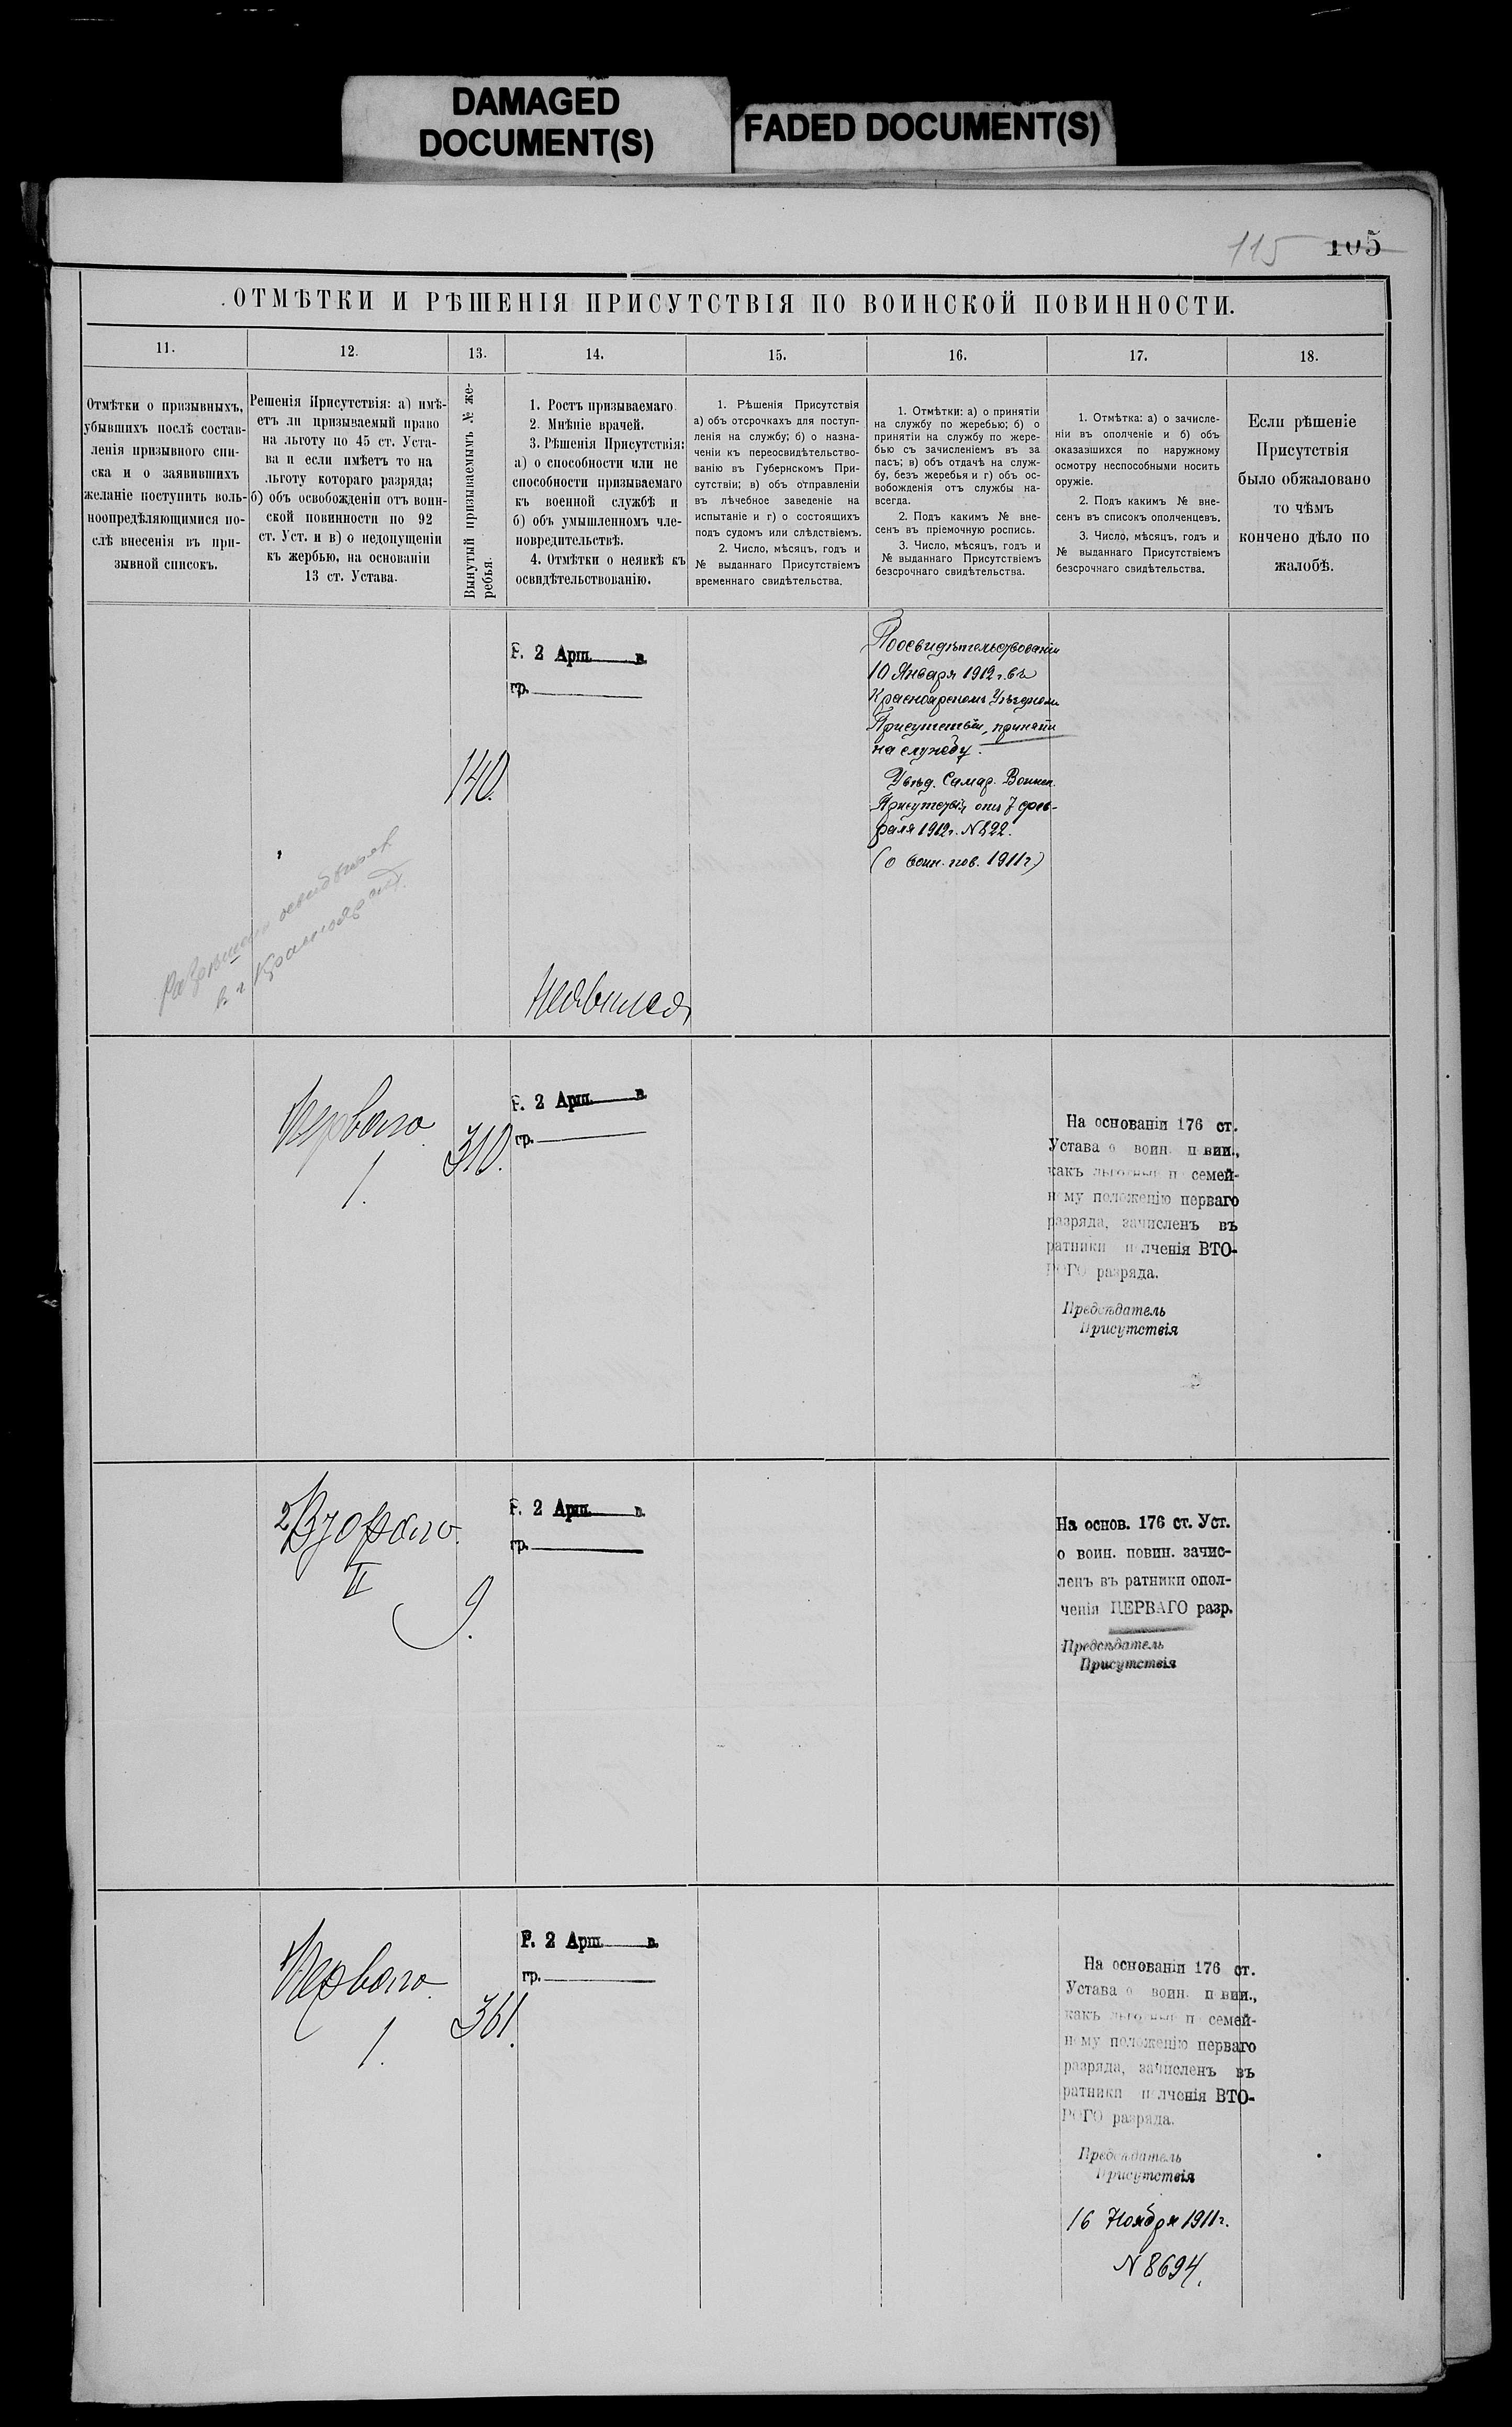 DAMAGED
DOCUMENT(S)
FADED DOCUMENT(S)
115 105
ОТМѢТКИ И РѢШЕНІЯ ПРИСУТСТВІЯ ПО ВОИНСКОЙ ПОВИННОСТИ.
11.
12.
13.
14.
15.
16.
17.
18.
Отмѣтки о призывныхъ,
убывшихъ послѣ состав-
ленія призывного спи-
ска и о заявившихъ
желаніе поступить воль-
ноопредѣляющимися по-
слѣ внесенія въ при-
зывной списокъ.
Решенія Присутствія: а) имѣ-
етъ ли призываемый право
на льготу по 45 ст. Уста-
ва и если имѣетъ то на
льготу котораго разряда;
б) объ освобожденіи отъ воин-
ской повинности по 92
ст. Уст. и в) о недопущеніи
къ жербью, на основаніи
13 ст. Устава.
Вынутый призываемымъ № же-
ребья.
1. Ростъ призываемаго.
2. Мнѣніе врачей.
3. Рѣшенія Присутствія:
а) о способности или не
способности призываемаго
къ военной службѣ и
б) объ умышленномъ чле-
новредительствѣ.
4. Отмѣтки о неявкѣ къ
освидѣтельствованію.
1. Рѣшенія Присутствія
а) объ отсрочкахъ для поступ-
ленія на службу; б) о назна-
ченіи къ переосвидѣтельство-
ванію въ Губернскомъ При-
сутствіи; в) объ отправленіи
въ лѣчебное заведеніе на
испытаніе и г) о состоящихъ
подъ судомъ или слѣдствіемъ.
2. Число, мѣсяцъ, годъ и
№ выданнаго Присутствіемъ
временнаго свидѣтельства.
1. Отмѣтки: а) о принятіи
на службу по жеребью; б) о
принятіи на службу по жере-
бью съ зачисленіемъ въ за
пасъ; в) объ отдачѣ на служ-
бу, безъ жеребья и г) объ ос-
вобожденія отъ службы на-
всегда.
2. Подъ какимъ № вне-
сенъ въ пріемочную роспись.
3. Число, мѣсяцъ, годъ и
№ выданнаго Присутствіемъ
безсрочнаго свидѣтельства.
1. Отмѣтка: а) о зачисле-
ніи въ ополченіе и б) объ
оказавшихся по наружному
осмотру неспособными носить
оружіе.
2. Подъ какимъ № вне-
сенъ въ списокъ ополченцевъ.
3. Число, мѣсяцъ, годъ и
№ выданнаго Присутствіемъ
безсрочнаго свидѣтельства.
Если рѣшеніе
Присутствія
было обжаловано
то чѣмъ
кончено дѣло по
жалобѣ.
140.
Р. 2 Арш. в.
гр.
Неявился
Поосвидѣтельствованіи
10 Января 1912 г. въ
Красноярскомъ Уѣздномъ
Присутствіи, принятъ
на службу.
Увѣд. Самар. Воинск.
Присутствія отъ 7 фев-
раля 1912 г. № 822.
(о воин. пов. 1911 г.)
Перваго
1.
310.
Р. 2 Арш. в.
гр.
На основаніи 176 ст.
Устава о воин. п вин.,
какъ льготный п семей-
ному положенію перваго
разряда, зачисленъ въ
ратники п лченія ВТО-
РОГО разряда.
Предсѣдатель
Присутствія
2 Втораго.
II
9.
Р. 2 Арш. в.
гр.
На основ. 176 ст. Уст.
о воин. повин. зачис-
ленъ въ ратники опол-
ченія ПЕРВАГО разр.
Предсѣдатель
Присутствія
Перваго.
1.
361.
Р. 2 Арш. в.
гр.
На основаніи 176 ст.
Устава о воин. п вин.,
какъ льготный п семей-
ному положенію перваго
разряда, зачисленъ въ
ратники п лченія ВТО-
РОГО разряда.
Предсѣдатель
Присутствія
16 Ноября 1911 г.
№ 8694.